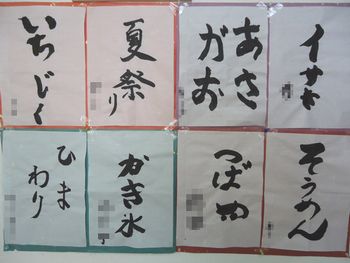 イサキ
あさ
がお
夏祭り
いちじく
そうめん
つばめ
かき氷
ひま
わり